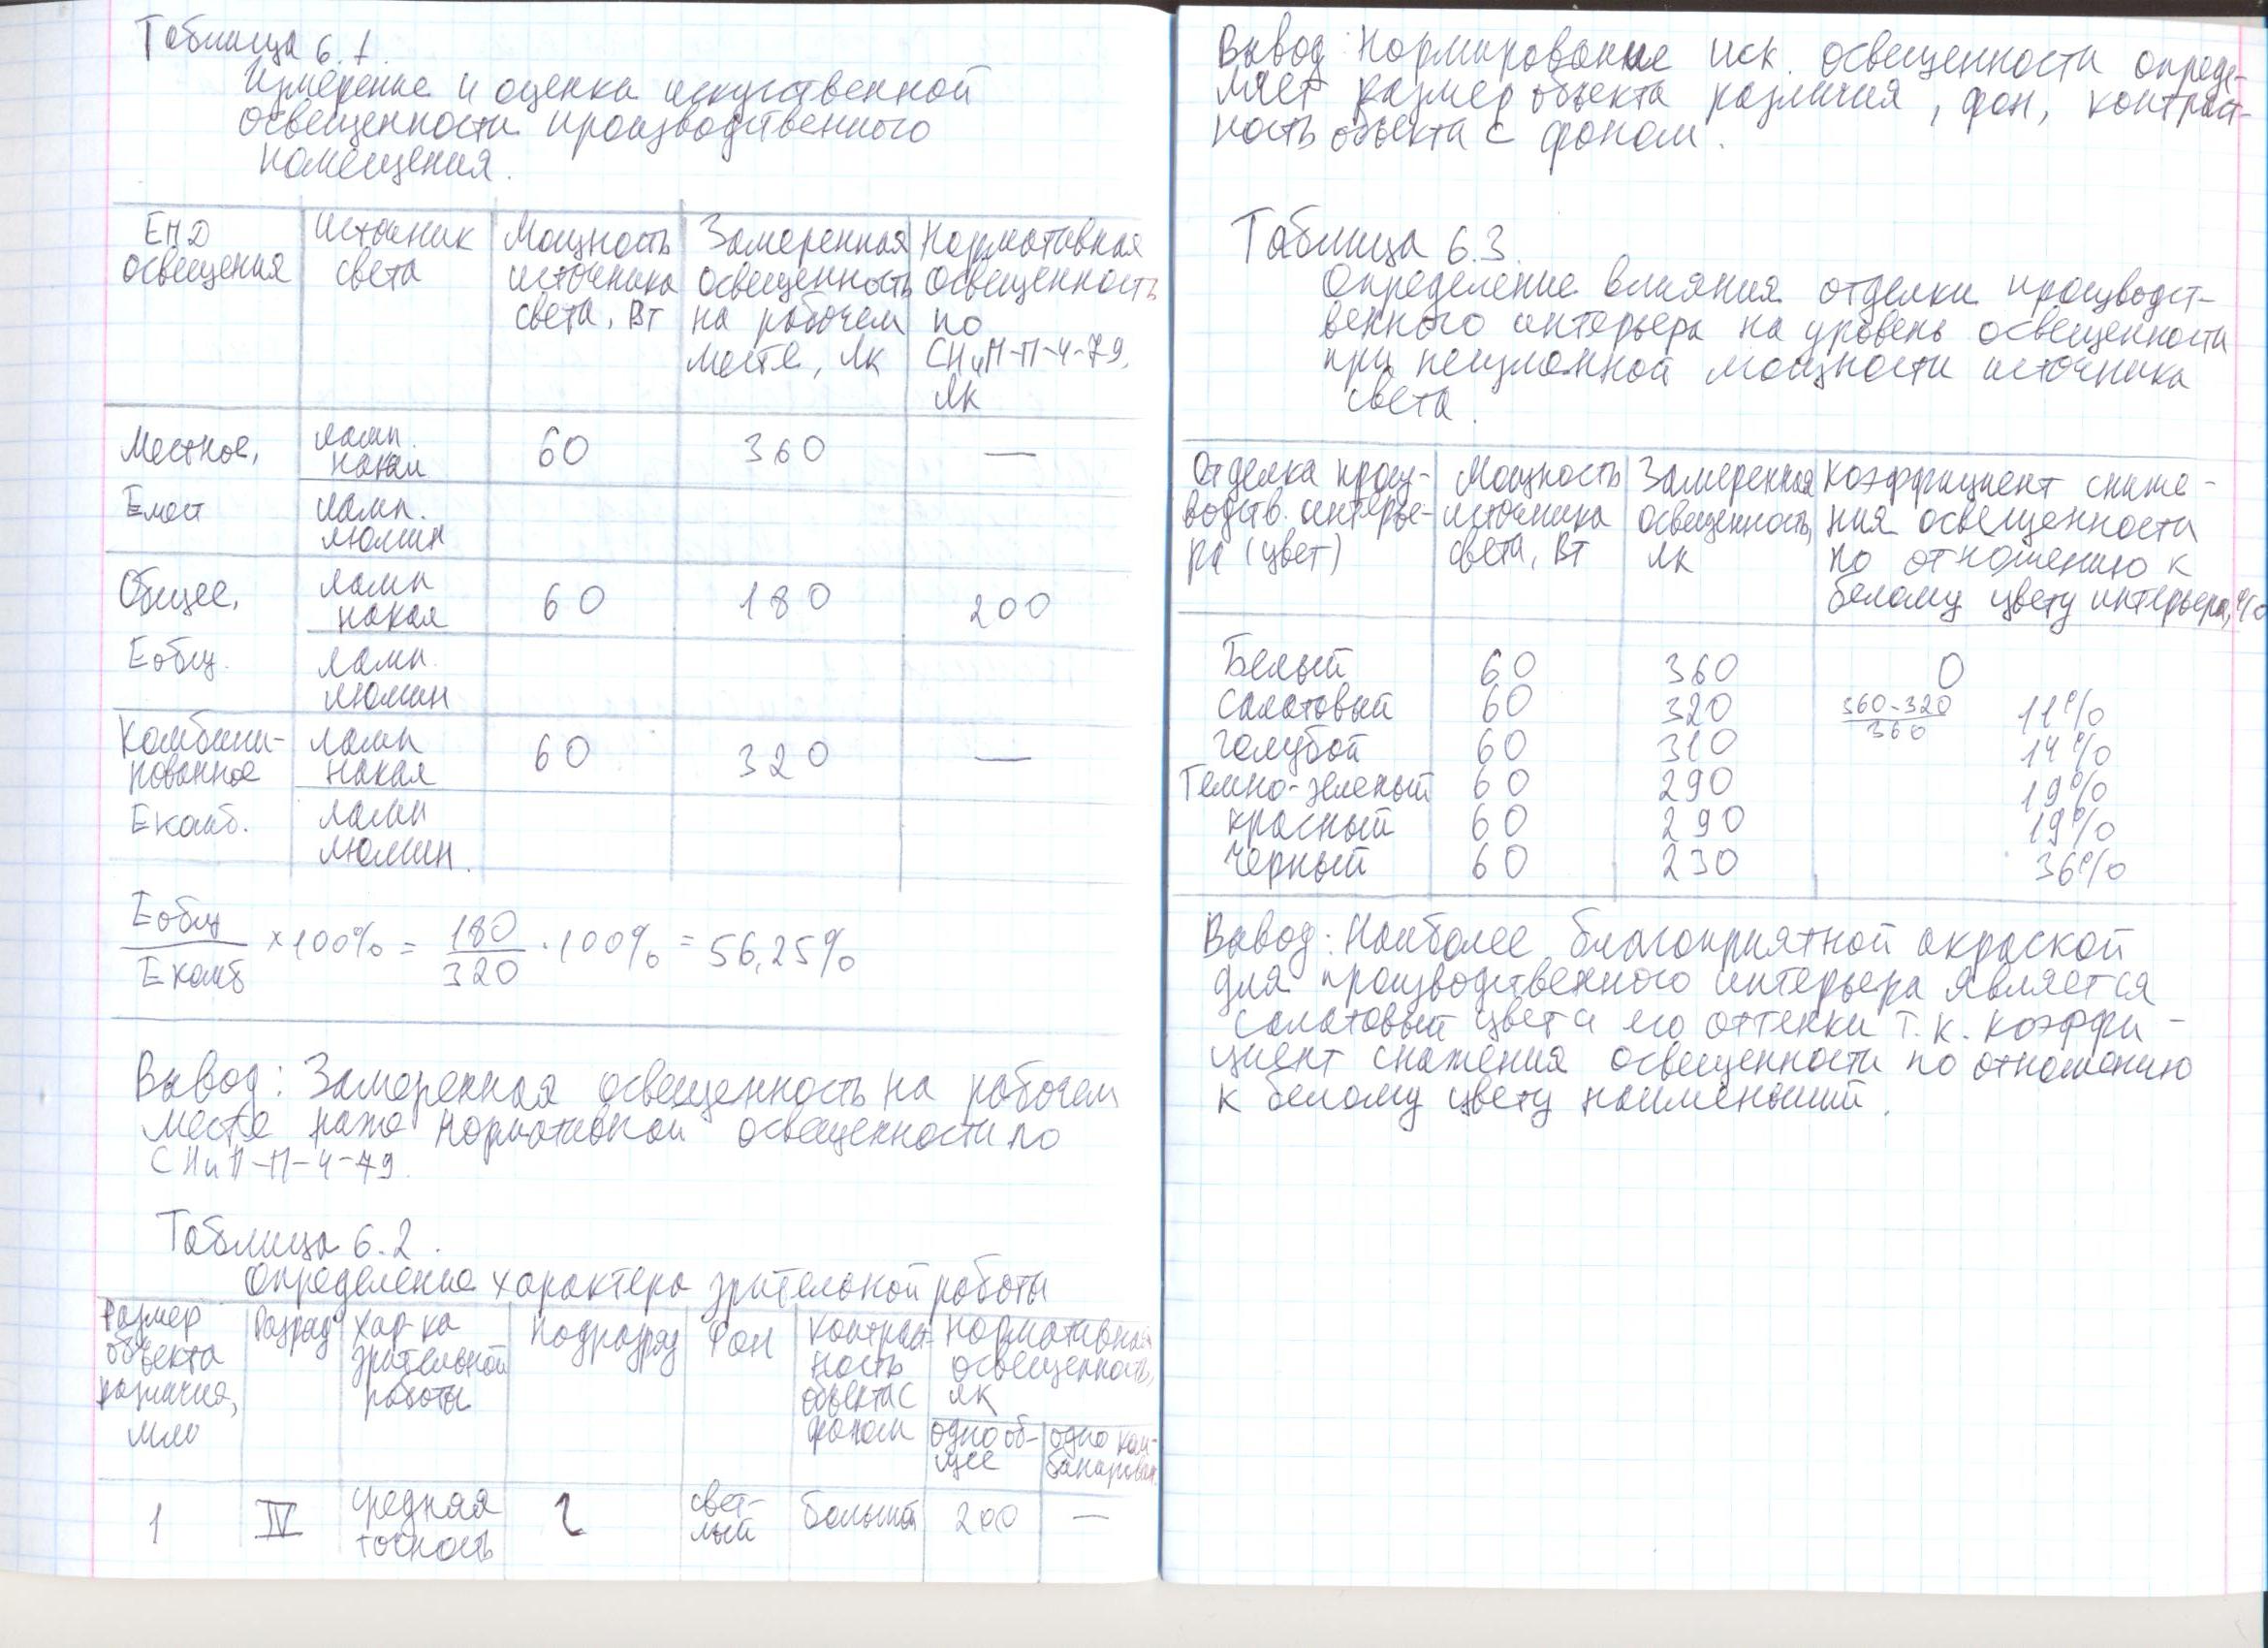 Таблица 6.1.
Измерение и оценка искуственной
освещенности производственного
помещения.
ЕНД освещения | Источник света | Мощность источника света, Вт | Замеренная освещенность на рабочем месте, лк | Нормативная освещенность по СНиП-П-4-79, лк
Местное, | ламп. накал | 60 | 360 | —
Емест | ламп. люмин
Общее, | ламп накал | 60 | 180 | 200
Еобщ. | ламп. люмин
Комбини-рованное | ламп накал | 60 | 320 | —
Екомб. | ламп люмин.
Еобщ / Екомб × 100% = 180/320 · 100% = 56,25%
Вывод: Замеренная освещенность на рабочем
месте ниже нормативной освещенности по
СНиП-П-4-79.
Таблица 6.2.
Определение характера зрительной работы
Размер объекта различия, мм | Разряд | Хар-ка зрительной работы | Подразряд | Фон | Контраст-ность объекта с фоном | Нормативная освещенность, лк
одно об-щее | одно ком-бинирован.
1 | IV | средняя точность | г | свет-лый | большой | 200 | —
Вывод: Нормирование иск. освещенности опреде-
ляет размер объекта различия, фон, контраст-
ность объекта с фоном.
Таблица 6.3.
Определение влияния отделки производст-
венного интерьера на уровень освещенности
при неизменной мощности источника
света.
Отделка произ-водств. интерье-ра (цвет) | Мощность источника света, Вт | Замеренная освещенность, лк | Коэффициент сниже-ния освещенности по отношению к белому цвету интерьера, %
Белый | 60 | 360 | 0
Салатовый | 60 | 320 | 360-320/360 | 11%
Голубой | 60 | 310 | 14%
Темно-зеленый | 60 | 290 | 19%
красный | 60 | 290 | 19%
черный | 60 | 230 | 36%
Вывод: Наиболее благоприятной окраской
для производственного интерьера является
салатовый цвет и его оттенки т.к. коэффи-
циент снижения освещенности по отношению
к белому цвету наименьший.